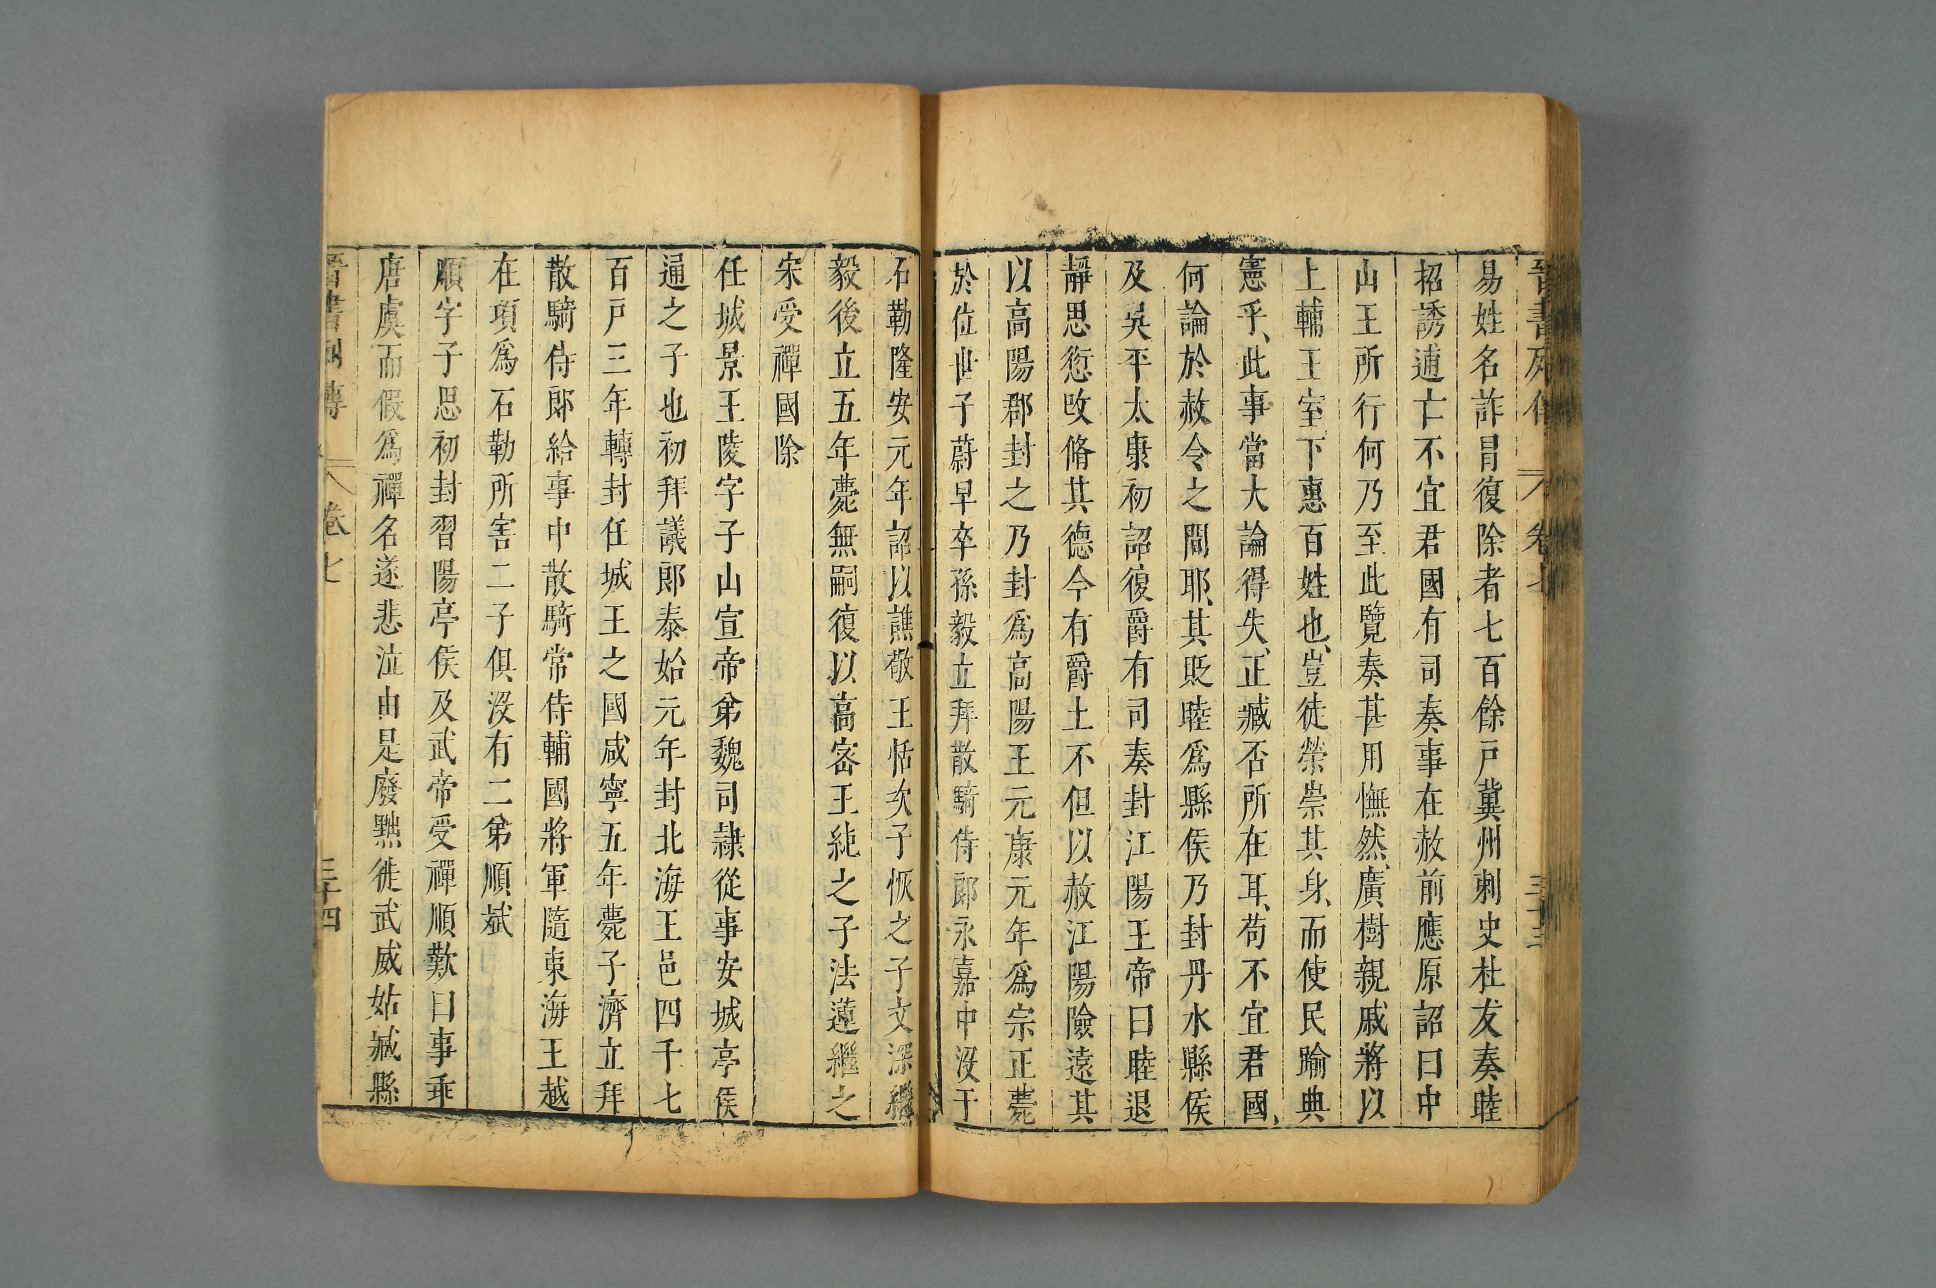 晉書列傳 卷七 三十三
易姓名詐冒復除者七百餘戸冀州刺史杜友奏睦
招誘逋亡不宜君國有司奏事在赦前應原詔曰中
山王所行何乃至此覽奏甚用憮然、廣樹親戚將以
上輔王室下惠百姓也、豈徒榮崇其身、而使民踰典
憲乎、此事當大論得失、正臧否所在耳、苟不宜君國、
何論於赦令之間耶、其貶睦爲縣侯乃封丹水縣侯
及吳平太康初詔復爵有司奏封江陽王帝曰睦退
靜思愆攺脩其德今有爵土不但以赦江陽險遠其
以高陽郡封之乃封爲高陽王元康元年爲宗正薨
於位世子蔚早卒孫毅立拜散騎侍郎永嘉中沒于
石勒隆安元年詔以譙敬王恬次子恢之子文深繼
毅後立五年薨無嗣復以高密王純之子法蓮繼之
宋受禪國除
任城景王陵字子山宣帝弟魏司隷從事安城亭侯
通之子也初拜議郎泰始元年封北海王邑四千七
百戸三年轉封任城王之國咸寧五年薨子濟立拜
散騎侍郎給事中散騎常侍輔國將軍隨東海王越
在項爲石勒所害二子俱沒有二弟順斌
順字子思初封習陽亭侯及武帝受禪順歎曰事乖
唐虞而假爲禪名遂悲泣由是廢黜徙武威姑臧縣
晉書列傳 卷七 三十四